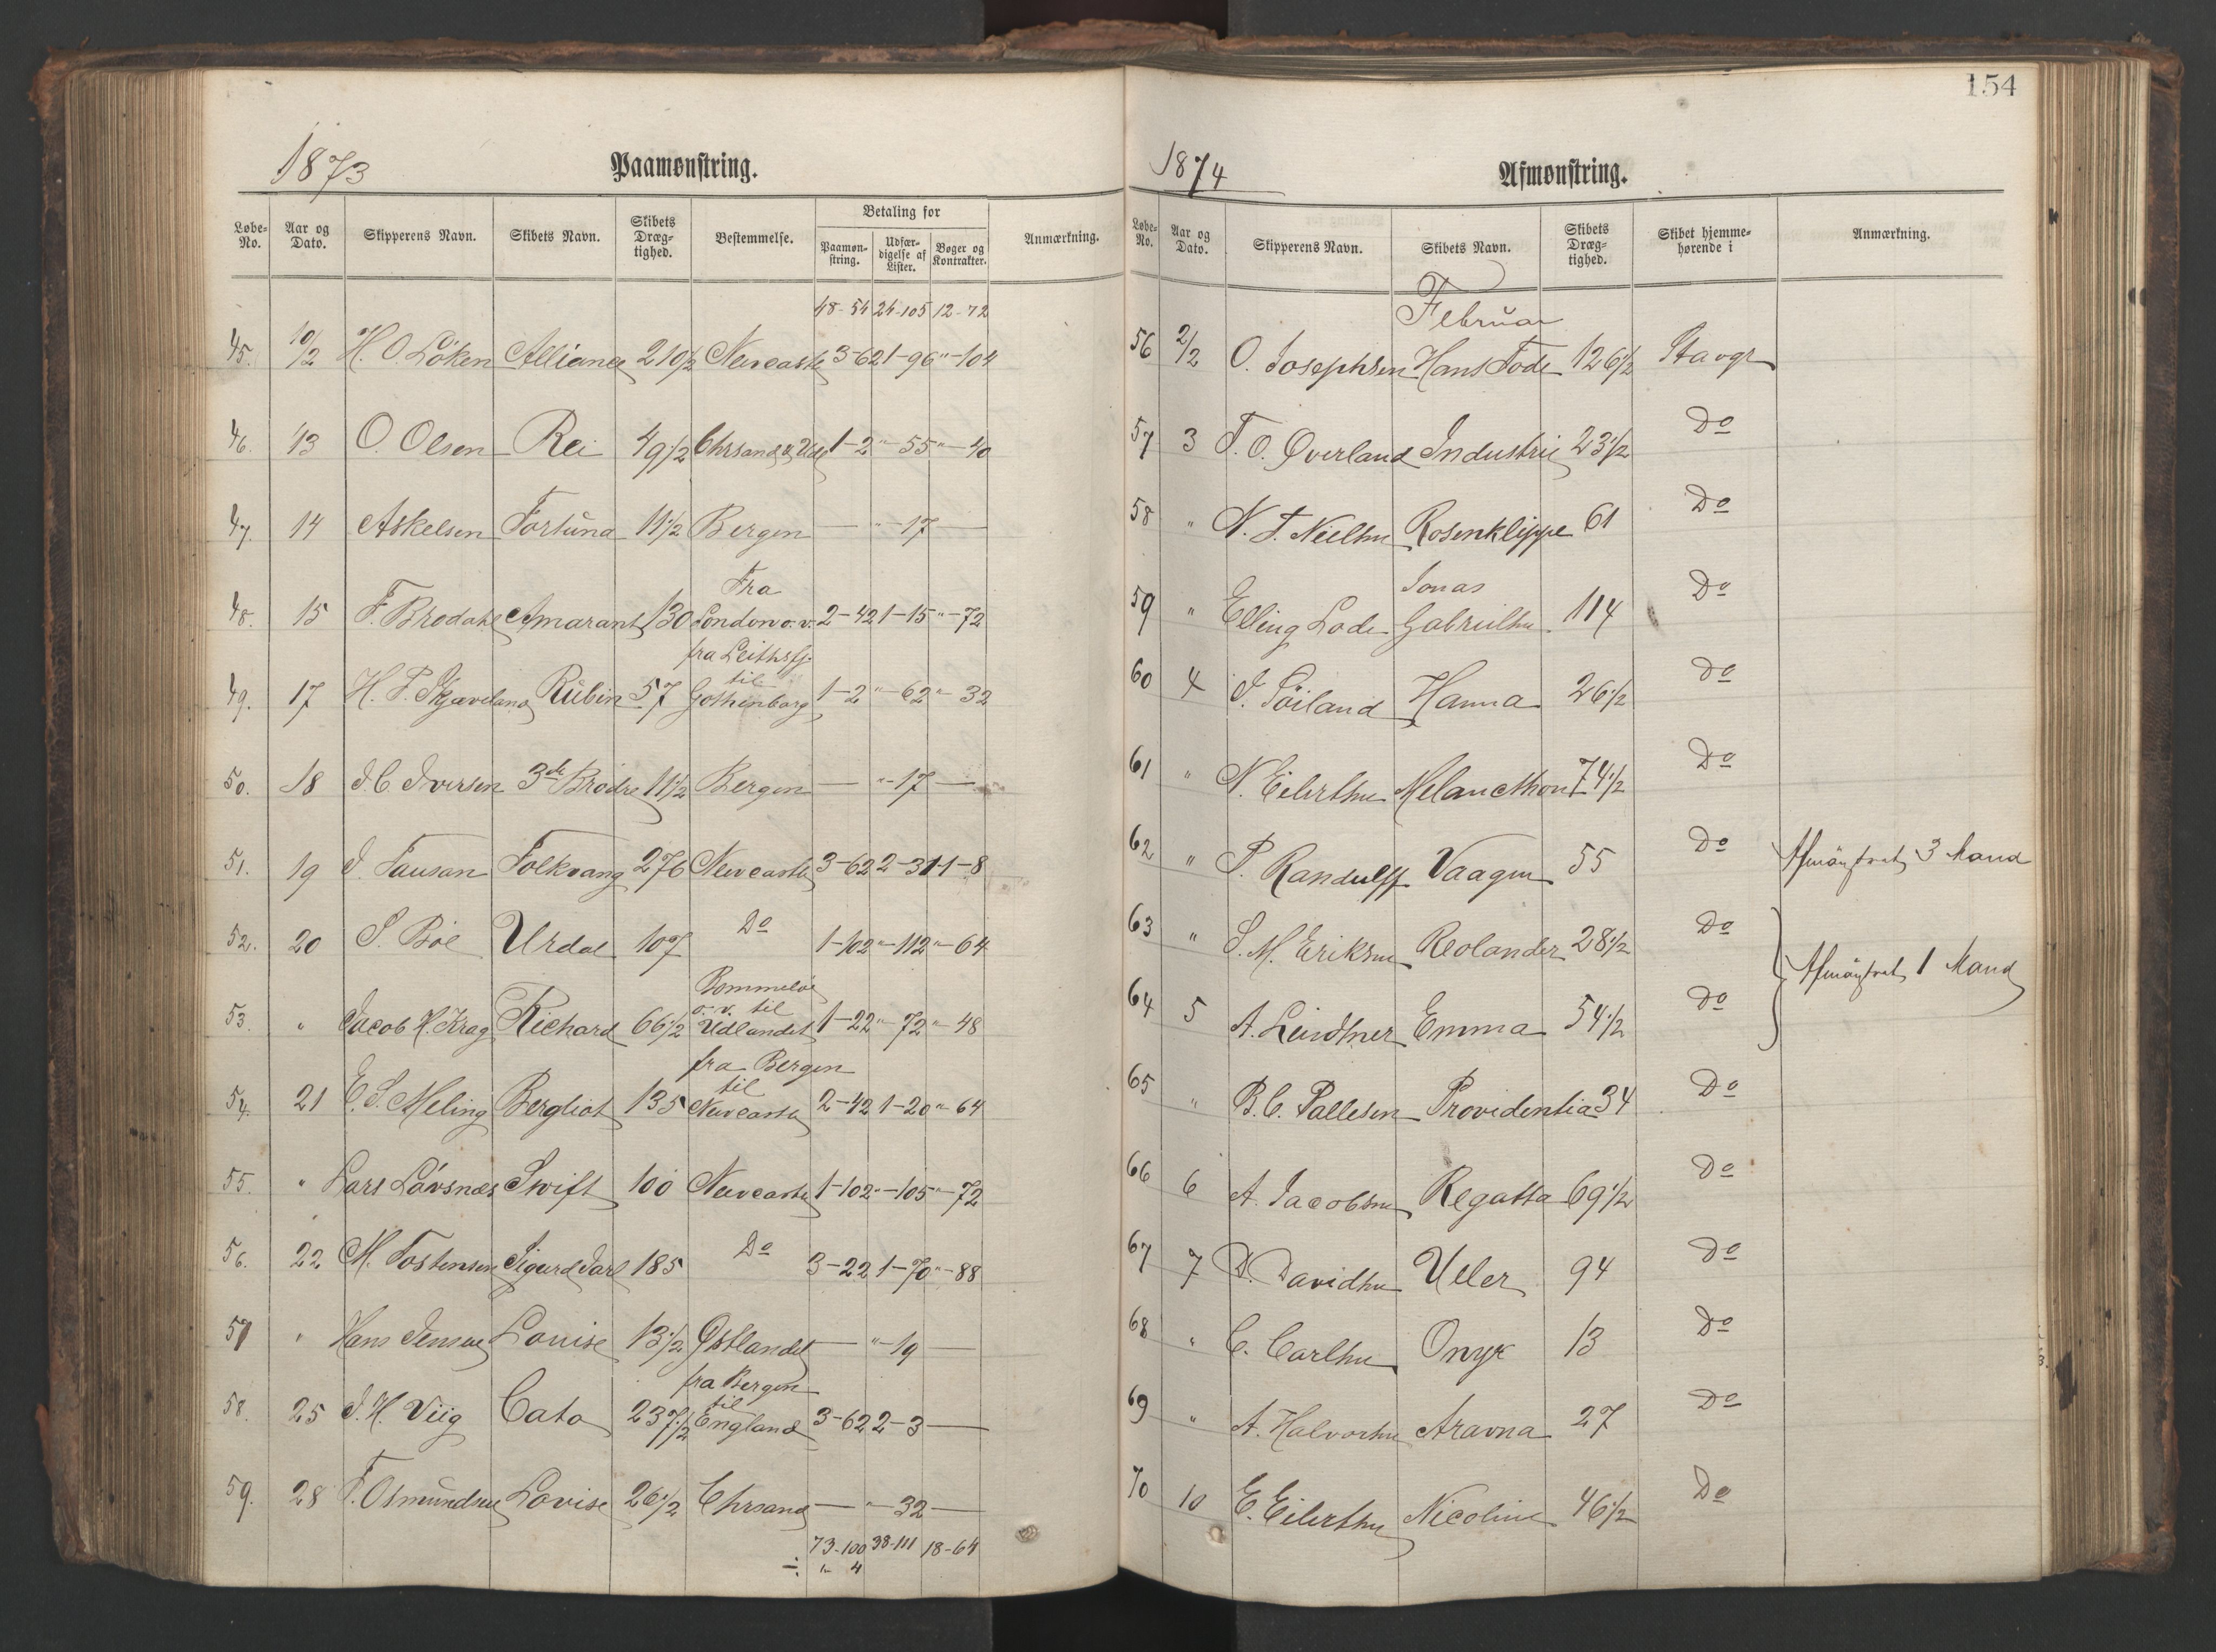 154
1873
Paamønstring.
Løbe-No. Aar og Dato. Skipperens Navn. Skibets Navn. Skibets Dræg-tighed. Bestemmelse. Betaling for Paamøn-string. Udfær-digelse af Lister. Bøger og Kontrakter. Anmærkning.
48-54 24-105 12-72
45. 10/2 H. O. Löken Alliance 210½ Newcastle 3-62 1-96 "-104
46. 13 O. Olsen Rei 49½ Chrsand v. Udl 1-2 "-55 "-40
47. 14 Askelsen Fortuna 11½ Bergen — "-17 —
Fra
48. 15 F. Brodahl Amarant 130 London o. v. 2-42 1-15 "-72
fra Leithsfj.
til
49. 17 H. T. Skjaveland Rubin 57 Gothenborg 1-2 "-62 "-32
50. 18 J. C. Iversen 3de Brödre 11½ Bergen — "-17 —
51. 19 J. Tausan Folkvang 276 Newcastle 3-62 2-31 1-8
52. 20 S. Böe Urdal 107 Do 1-102 "-112 "-64
Bommelöe
o. v. til
53. " Jacob H. Krag Richard 66½ Udlandet 1-22 "-72 "-48
fra Bergen
til
54. 21 E. S. Meling Bergliot 135 Newcastle 2-42 1-20 "-64
55. " Lars Lövsnæs Swift 100 Newcastle 1-102 "-105 "-72
56. 22 M. Tostensen Sigurd Jarl 185 Do 3-22 1-70 "-88
57 " Hans Jensen Louise 13½ Østlandet — "-19 —
fra Bergen
til
58. 25 J. H. Viig Cato 237½ England 3-62 2-3 —
59. 28 T. Osmundsen Lovise 26½ Chrsand — "-32 —
73-100 38-111 18-64
÷ "- 4
1874
Afmønstring.
Løbe-No. Aar og Dato. Skipperens Navn. Skibets Navn. Skibets Dræg-tighed. Skibet hjemme-hørende i Anmærkning.
Februar
56 2/2 O. Josephsen Hans Tode 126½ Stavgr
57 3 T. O. Øverland Industrie 23½ Do
58 " N. T. Nielsen Rosenklippe 61 Do
Jonas
59 " Elling Lode Gabrielsen 114 Do
60 4 J. Söiland Hanna 26½ Do
61 " N. Eilertsen Melancthon 74½ Do
62 " P. Randulff Vaagen 55 Do Afmönstret 3 Mand
63 " S. M. Eriksen Reolander 28½ Do
Afmönstret 1 Mand
64 5 A. Leidtner Emma 54½ Do
65 " B. C. Pallesen Providentia 34 Do
66 6 A. Jacobsen Regatta 69½ Do
67 7 D. Davidsen Uller 94 Do
68 " C. Carlsen Onyx 13 Do
69 " A. Halvorsen Aravna 27 Do
70 10 E. Eilertsen Nicoline 46½ Do